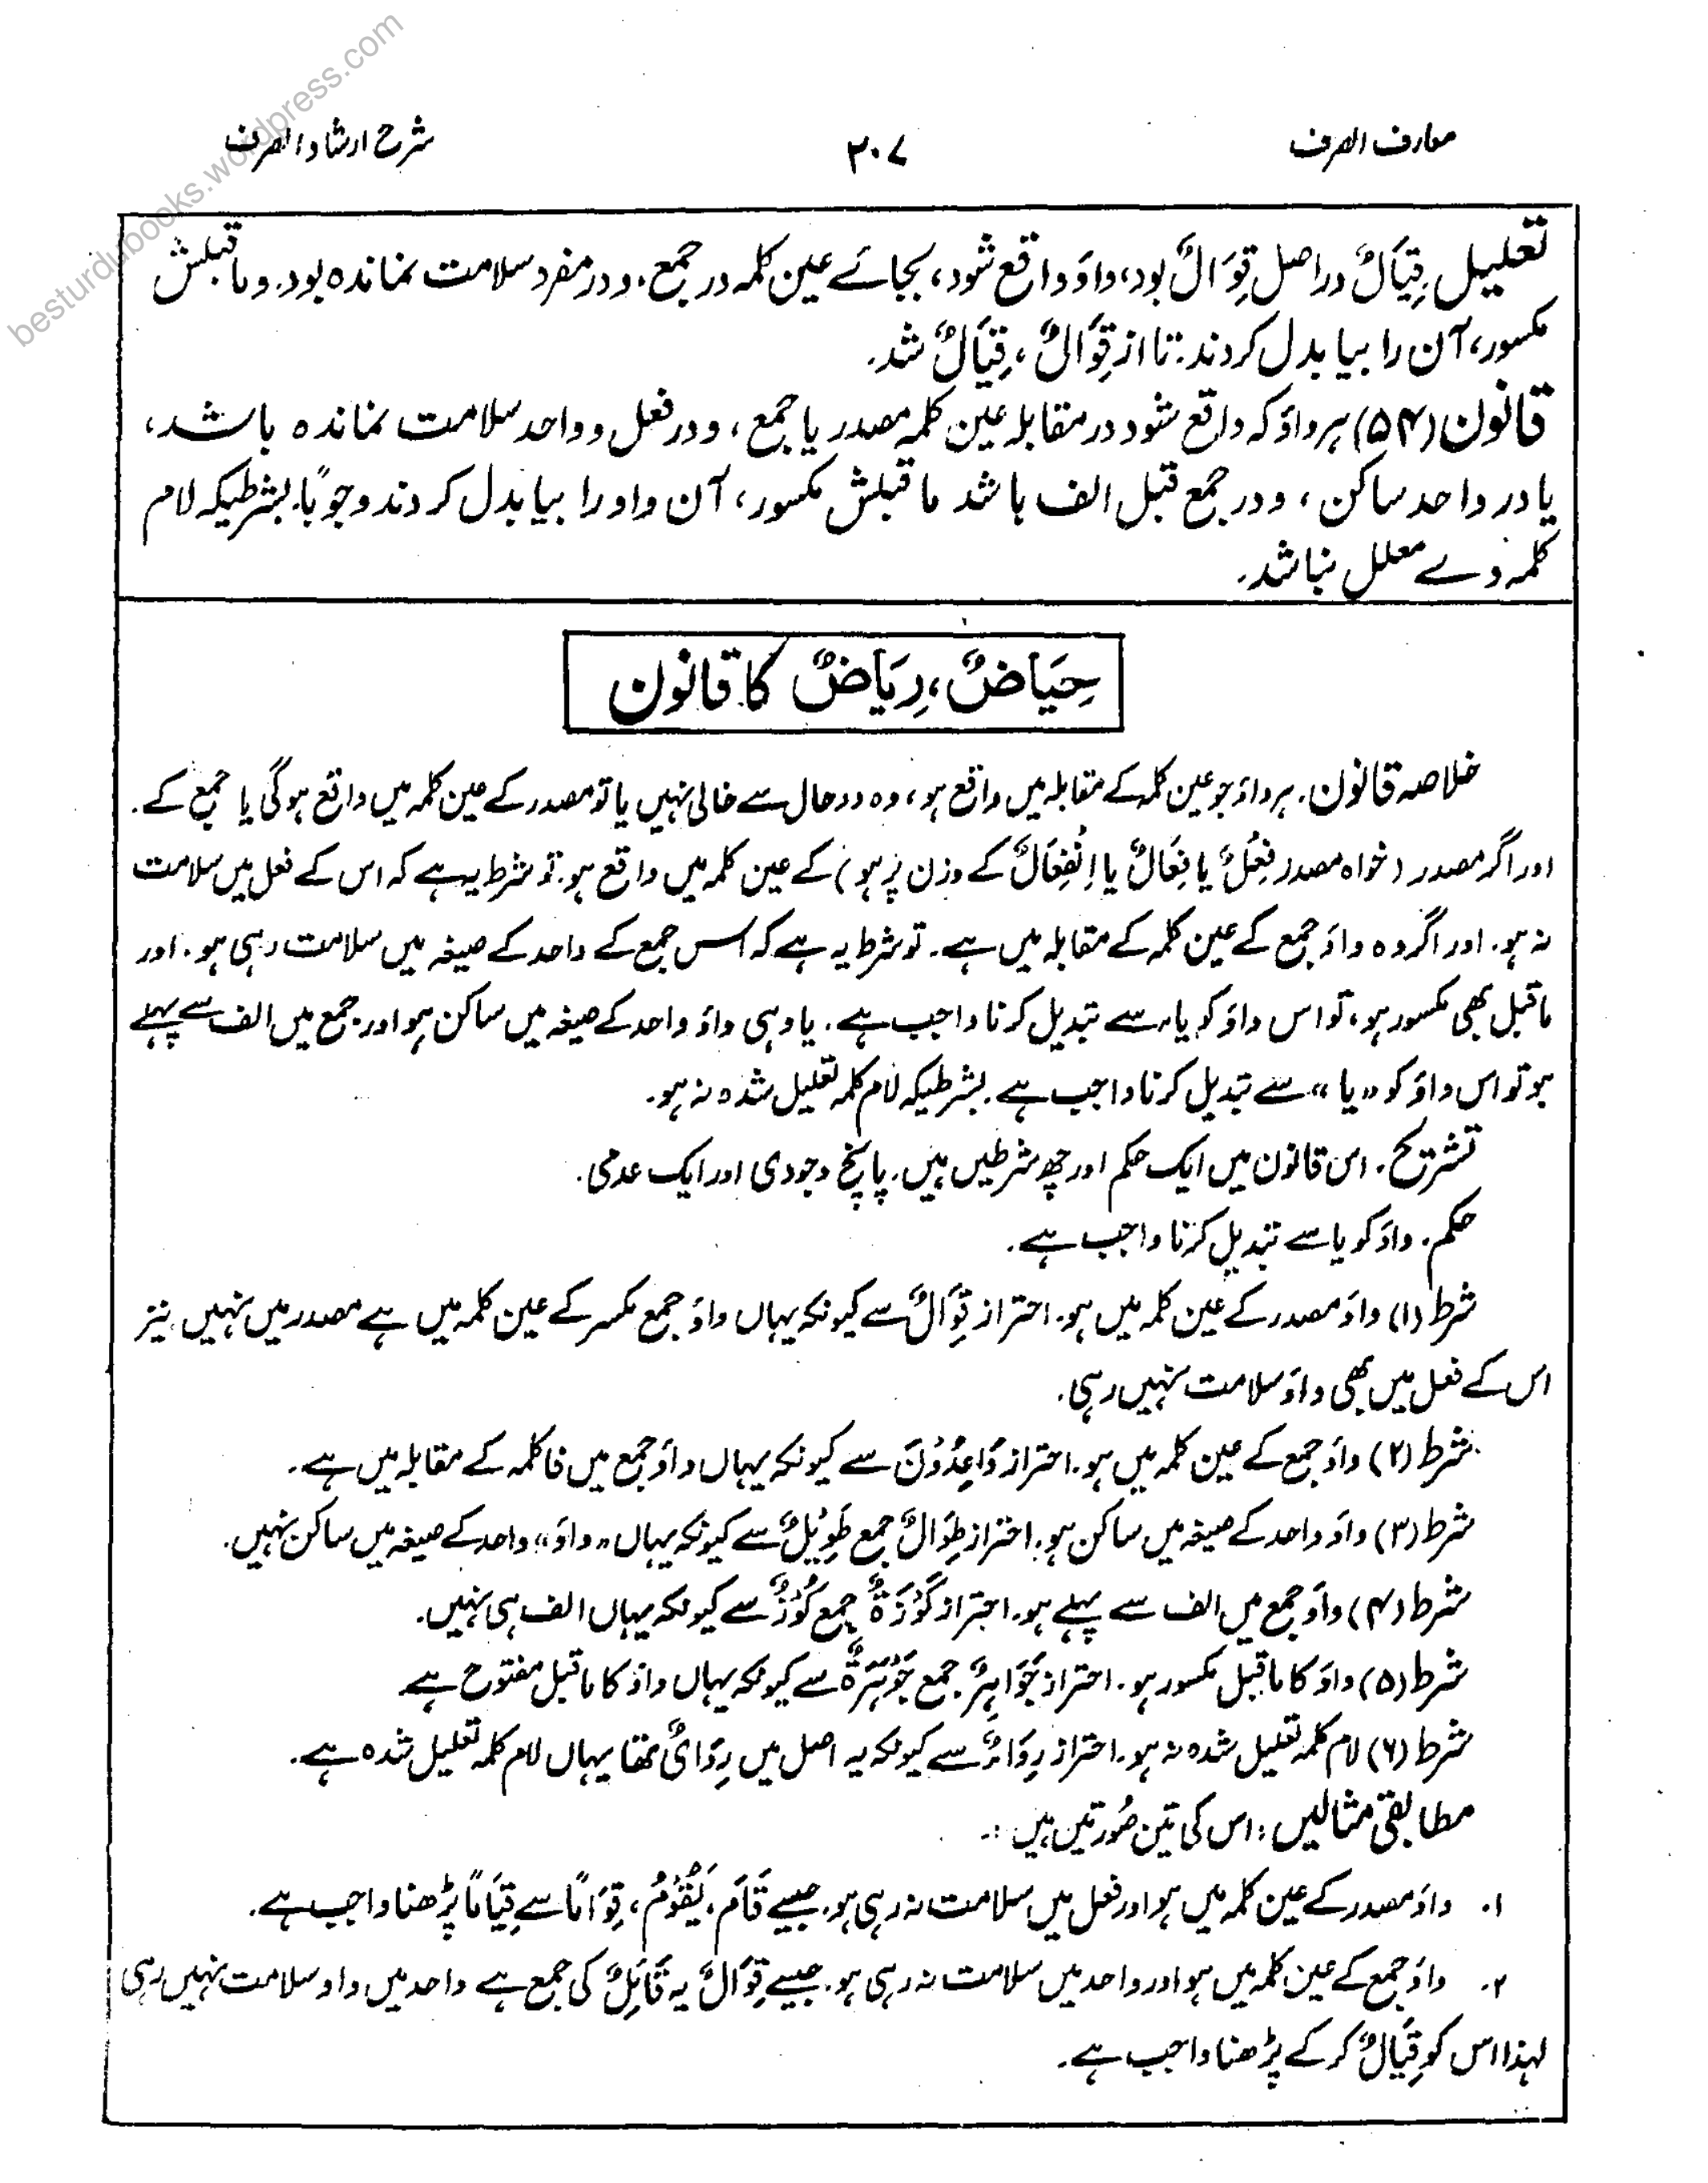 معارف الصرف
۳۰۷
شرح ارشاد الصرف
besturdubooks.wordpress.com
تعلیل، قِیَالٌ در اصل قِوَالٌ بود، واوَ واقع شود، بجائے عین کلمہ در جمع. و در مفرد سلامت نماندہ بود. وما قبلش
مکسور، آن را بیا بدل کردند: تا از قِوَالٌ، قِیَالٌ شد.
قانون (۵۴) ہر واؤ کہ واقع شود در مقابلہ عین کلمہ مصدر یا جمع، و در فعل و واحد سلامت نماندہ باشد،
یا در واحد ساکن، و در جمع قبل الف باشد ماقبلش مکسور، آن واو را بیا بدل کردند وجوباً. بشرطیکہ لام
کلمہ وے معلل نباشد.
حِیَاضٌ، رِیَاضٌ کا قانون
خلاصہ قانون. ہر واؤ جو عین کلمہ کے مقابلہ میں واقع ہو، وہ دو حال سے خالی نہیں یا تو مصدر کے عین کلمہ میں واقع ہوگی یا جمع کے.
اور اگر مصدر (خواہ مصدر فِعْلٌ یا فِعَالٌ یا اِنْفِعَالٌ کے وزن پر ہو) کے عین کلمہ میں واقع ہو. تو شرط یہ ہے کہ اس کے فعل میں سلامت
نہ ہو. اور اگر وہ واؤ جمع کے عین کلمہ کے مقابلہ میں ہے. تو شرط یہ ہے کہ اس جمع کے واحد کے صیغہ میں سلامت رہی ہو. اور
ماقبل بھی مکسور ہو، تو اس واؤ کو یاء سے تبدیل کرنا واجب ہے. یا وہی واؤ واحد کے صیغہ میں ساکن ہو اور جمع میں الف سے پہلے
ہو تو اس واؤ کو "یا" سے تبدیل کرنا واجب ہے. بشرطیکہ لام کلمہ تعلیل شدہ نہ ہو.
تشریح. اس قانون میں ایک حکم اور چھ شرطیں ہیں. پانچ وجودی اور ایک عدمی.
حکم. واؤ کو یا سے تبدیل کرنا واجب ہے.
شرط (۱) واؤ مصدر کے عین کلمہ میں ہو. احتراز قِوَالٌ سے کیونکہ یہاں واؤ جمع مکسر کے عین کلمہ میں ہے مصدر میں نہیں نیز
اس کے فعل میں بھی واؤ سلامت نہیں رہی.
شرط (۲) واؤ جمع کے عین کلمہ میں ہو. احتراز وَاعِدُوْنَ سے کیونکہ یہاں واؤ جمع میں فا کلمہ کے مقابلہ میں ہے.
شرط (۳) واؤ واحد کے صیغہ میں ساکن ہو. احتراز طِوَالٌ جمع طَوِیْلٌ سے کیونکہ یہاں "واؤ" واحد کے صیغہ میں ساکن نہیں.
شرط (۴) واؤ جمع میں الف سے پہلے ہو. احتراز کِوَزَةٌ جمع کُوْزٌ سے کیونکہ یہاں الف ہی نہیں.
شرط (۵) واؤ کا ماقبل مکسور ہو. احتراز جَوَاہِرُ جمع جَوْہَرَةٌ سے کیونکہ یہاں واؤ کا ماقبل مفتوح ہے
شرط (۶) لام کلمہ تعلیل شدہ نہ ہو. احتراز رِوَاءٌ سے کیونکہ یہ اصل میں رِوَایٌ تھا یہاں لام کلمہ تعلیل شدہ ہے.
مطابقی مثالیں: اس کی تین صُورتیں ہیں :.
۱. واؤ مصدر کے عین کلمہ میں ہو اور فعل میں سلامت نہ رہی ہو. جیسے قَامَ، یَقُوْمُ، قِوَامًا سے قِیَامًا پڑھنا واجب ہے.
۲. واؤ جمع کے عین کلمہ میں ہو اور واحد میں سلامت نہ رہی ہو. جیسے قِوَالٌ یہ قَائِلٌ کی جمع ہے واحد میں واو سلامت نہیں رہی
لہذا اس کو قِیَالٌ کر کے پڑھنا واجب ہے.